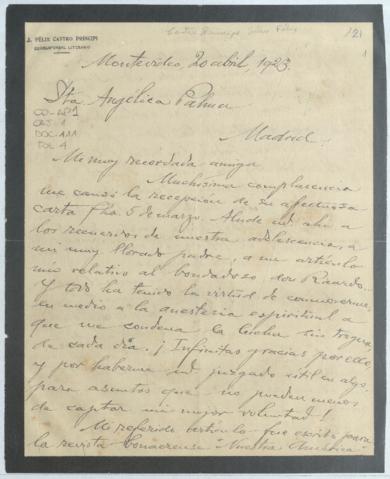 J. FÉLIX CASTRO PRINCIPI
CORRESPONSAL LITERARIO
121
1
Montevideo, 20 abril, 1923.
Sta Angélica Palma
Madrid.
Mi muy recordada amiga
Muchísima complacencia
me causó la recepción de su afectuosa
carta fha. 5 de marzo. Alude ud ahí a
los recuerdos de nuestra adolescencia, a
mi muy llorado padre, a un artículo
mío relativo al bondadoso don Ricardo...
Y todo ha tenido la virtud de conmoverme,
en medio a la anestesia espiritual a
que me condena la lucha sin tregua
de cada día. ¡Infinitas gracias por ello,
y por haberme ud juzgado útil en algo,
para asuntos que no pueden menos
de captar mi mejor voluntad!
Mi referido artículo fue escrito para
la revista bonaerense "Nuestra América"